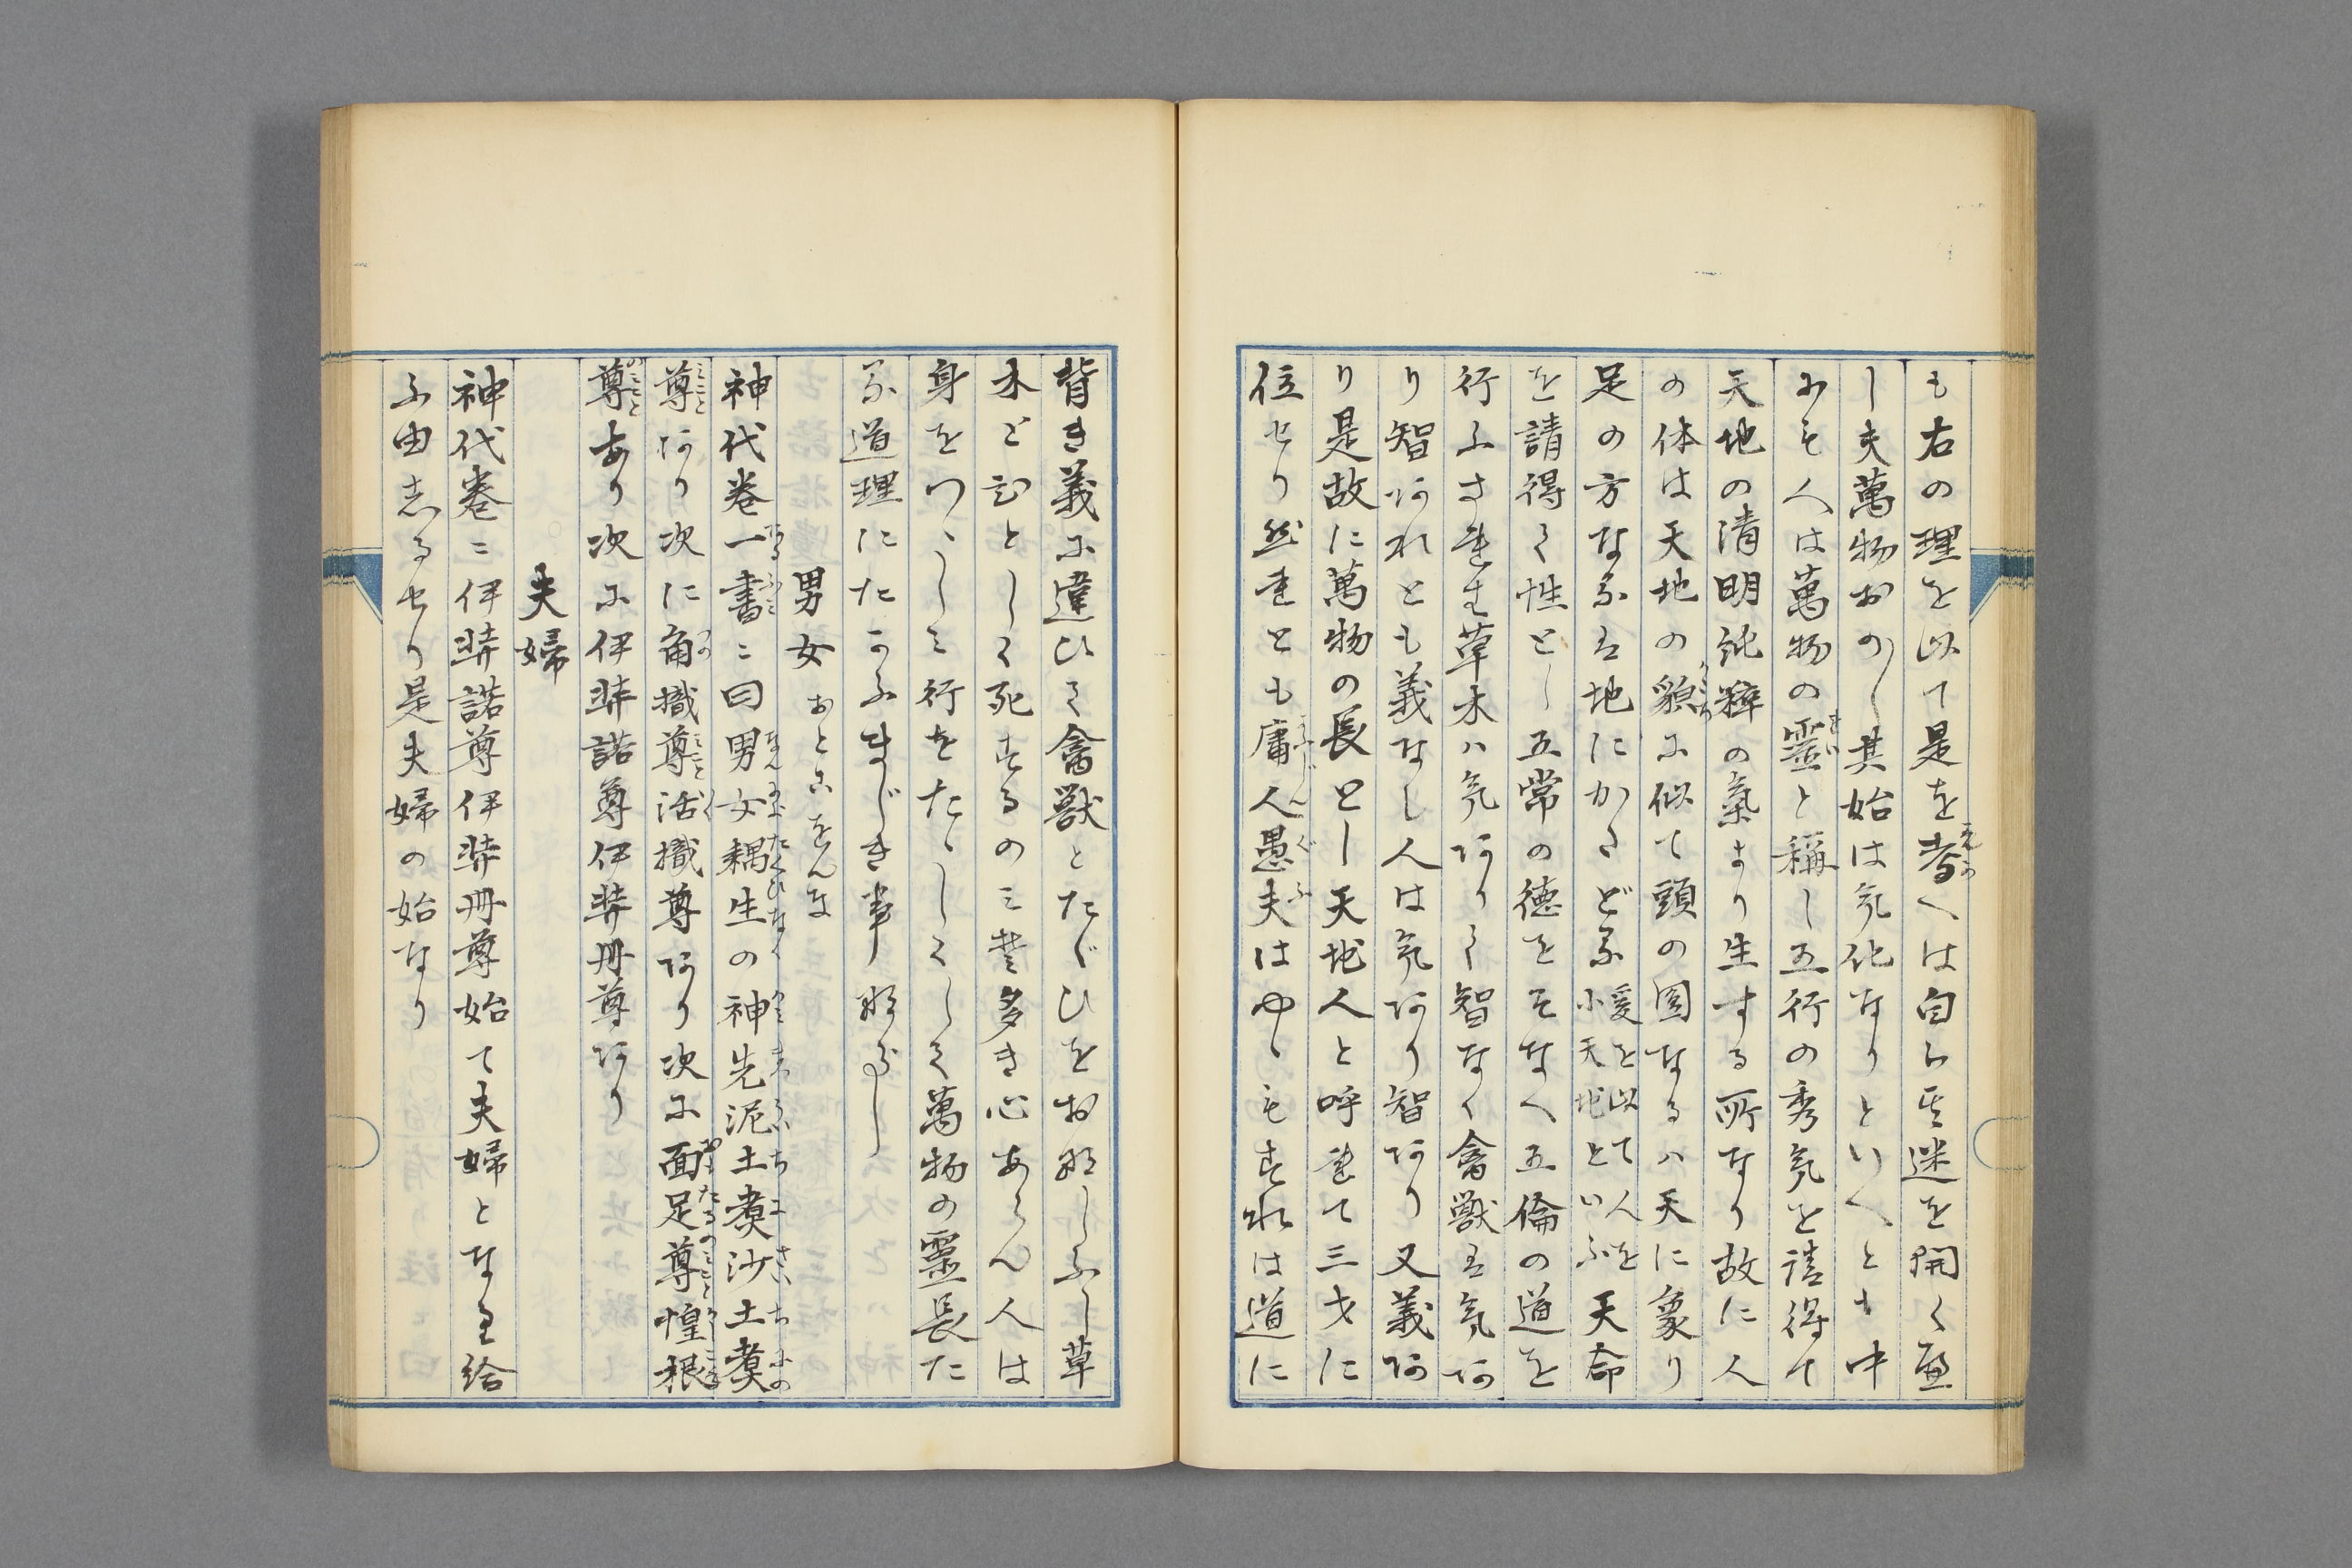 も右の理を以て是を考へは自ら其迷を開くべ
し夫萬物おのく其始は気化なりといへとも中
にも人は萬物の靈と稱し五行の秀気を請得て
天地の清明純粹の氣より生する所なり故に人
の体は天地の貌に似て頭の圓なるハ天に象り
足の方なるは地にかたどる爰を以て人を小天地といふ天命
を請得て性とし五常の徳をそなへ五倫の道を
行ふされは草木ハ気ありて智なく禽獣は気あ
り智あれとも義なし人は気あり智あり又義あ
り是故に萬物の長とし天地人と呼れて三才に
位せり然れとも庸人愚夫はやゝもすれは道に
背き義に違ひて禽獣とたぐひをおなしふし草
木とひとしく死するのミ豈多き心あらん人は
身をつゝしミ行をたゝしくして萬物の靈長た
る道理にたかふまじき事なるべし
男女 おとこをんな
神代巻一書ニ曰男女耦生の神先泥土煑沙土煑
尊あり次に角樴尊活樴尊あり次に面足尊惶根
尊あり次に伊弉諾尊伊弉冊尊あり
夫婦
神代巻ニ伊弉諾尊伊弉冊尊始て夫婦となり給
ふ由しるせり是夫婦の始なり